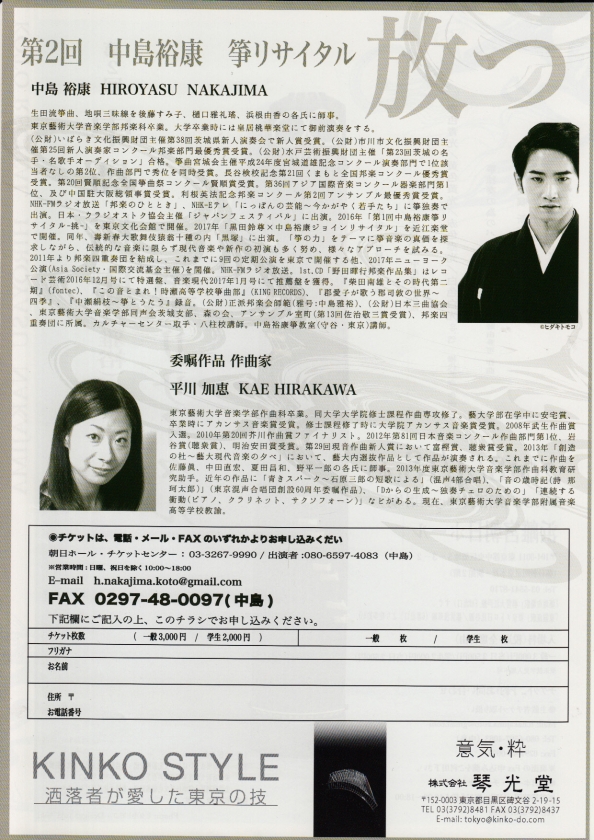 第2回　中島裕康　箏リサイタル
放つ
中島 裕康 HIROYASU NAKAJIMA
生田流箏曲、地唄三味線を後藤すみ子、樋口雅礼瑤、浜根由香の各氏に師事。
東京藝術大学音楽学部邦楽科卒業。大学卒業時には皇居桃華楽堂にて御前演奏をする。
(公財)いばらき文化振興財団主催第38回茨城県新人演奏会で新人賞受賞。(公財)市川市文化振興財団主
催第25回新人演奏家コンクール邦楽部門最優秀賞受賞。(公財)水戸芸術振興財団主催「第23回茨城の名
手・名歌手オーディション」合格。箏曲宮城会主催平成24年度宮城道雄記念コンクール演奏部門で1位該
当者なしの第2位、作曲部門で秀位を同時受賞。長谷検校記念第21回くまもと全国邦楽コンクール優秀
賞受賞。第20回賢順記念全国箏曲祭コンクール賢順賞受賞。第36回アジア国際音楽コンクール楽器部門第1
位、及び中国駐大阪総領事賞受賞。利根英法記念邦楽コンクール第2位アンサンブル最優秀賞受賞。
NHK-FMラジオ放送「邦楽のひととき」、NHK-Eテレ「にっぽんの芸能〜今かがやく若手たち」に箏独奏で
出演。日本・ウラジオストク協会主催「ジャパンフェスティバル」に出演。2016年「第1回中島裕康箏リ
サイタル-挑-」を東京文化会館で開催。2017年「黒田鈴尊×中島裕康ジョイントリサイタル」を近江楽堂
で開催。同年、壽新春大歌舞伎猿翁十種の内「黒塚」に出演。「箏の力」をテーマに箏音楽の真価を探
求しながら、伝統的な音楽に限らず現代音楽や新作の初演も多く努め、様々なアプローチを試みる。
2011年より邦楽四重奏団を結成し、これまでに9回の定期公演を東京で開催する他、2017年ニューヨーク
公演(Asia Society・国際交流基金主催)を開催。NHK-FMラジオ放送。1st,CD「野田暉行邦楽作品集」はレコ
ード芸術2016年12月号にて特選盤、音楽現代2017年1月号にて推薦盤を獲得。『柴田南雄とその時代第二
期』(fontec)、『この音とまれ！時瀬高等学校箏曲部』(KING RECORDS)、「郡愛子が歌う郡司敦の世界〜
四季」、『中瀬絹枝〜箏とうたう』録音。(公財)正派邦楽会師範(雅号:中島雅裕)、(公財)日本三曲協会
、東京藝術大学音楽学部同声会茨城支部、森の会、アンサンブル室町(第13回佐治敬三賞受賞)、邦楽四
重奏団に所属。カルチャーセンター取手・八柱校講師。中島裕康箏教室(守谷・東京)講師。
©ヒダキトモコ
委嘱作品 作曲家
平川 加恵 KAE HIRAKAWA
東京藝術大学音楽学部作曲科卒業。同大学大学院修士課程作曲専攻修了。藝大学部在学中に安宅賞、
卒業時にアカンサス音楽賞受賞。修士課程修了時に大学院アカンサス音楽賞受賞。2008年武生作曲賞
入選。2010年第20回芥川作曲賞ファイナリスト。2012年第81回日本音楽コンクール作曲部門第1位、岩
谷賞(聴衆賞)、明治安田賞受賞。第29回現音作曲新人賞において富樫賞、聴衆賞受賞。2013年「創造
の杜〜藝大現代音楽の夕べ」において、藝大内選抜作品として作品が演奏される。これまでに作曲を
佐藤眞、中田直宏、夏田昌和、野平一郎の各氏に師事。2013年度東京藝術大学音楽学部作曲科教育研
究助手。近年の作品に「青きスパーク〜石原三郎の短歌による」(混声4部合唱)、「音の歳時記(詩 那
珂太郎)」(東京混声合唱団創設60周年委嘱作品)、「Dからの生成〜独奏チェロのための」「連続する
衝動(ピアノ、クラリネット、サクソフォーン)」などがある。現在、東京藝術大学音楽学部附属音楽
高等学校教諭。
◉チケットは、電話・メール・FAXのいずれかよりお申し込みください
朝日ホール・チケットセンター：03-3267-9990 / 出演者:080-6597-4083（中島）
※営業時間：日曜、祝日を除く10:00〜18:00
E-mail h.nakajima.koto@gmail.com
FAX 0297-48-0097(中島)
下記欄にご記入の上、このチラシでお申し込みください。
チケット枚数 ( 一般3,000円 / 学生2,000円 ) 一般 枚 / 学生 枚
フリガナ
お名前
住所 〒
お電話番号
KINKO STYLE
洒落者が愛した東京の技
意気・粋
株式会社 琴光堂
〒152-0003 東京都目黒区碑文谷 2-19-15
TEL 03(3792)8481 FAX 03(3792)8437
E-mail: tokyo@kinko-do.com